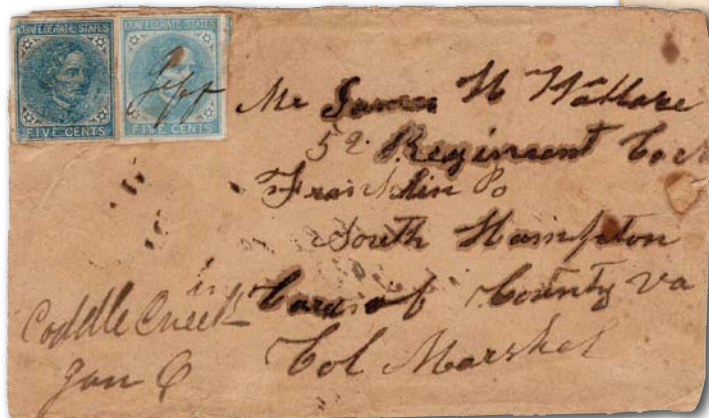 CONFEDERATE STATES
FIVE CENTS
CONFEDERATE STATES
FIVE CENTS
Mr James H Wallace
52 Regiment Co
Franklin Po
South Hampton
in Care of County Va
Col Marshel
Coddle Creek
Jan 6